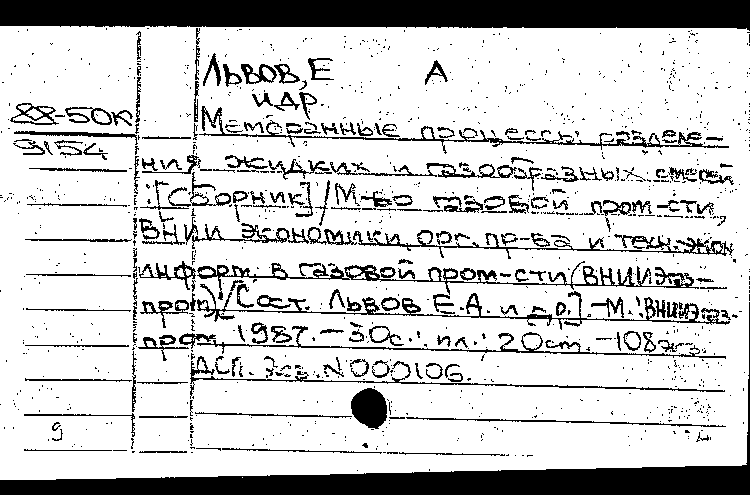 Львов, Е А
и др.
88-50К
Мембранные процессы разделе-
9154
ния жидких и газообразных смесей
: [Сборник] / М-во газовой пром-сти,
ВНИИ экономики, орг. пр-ва и техн.-экон.
информ. в газовой пром-сти (ВНИИЭгаз-
пром); [Сост. Львов Е.А. и др.]. - М.: ВНИИЭгаз-
пром, 1987. - 30с.: ил.; 20см. - 108экз.
ДСП. Экз. N 000106.
9